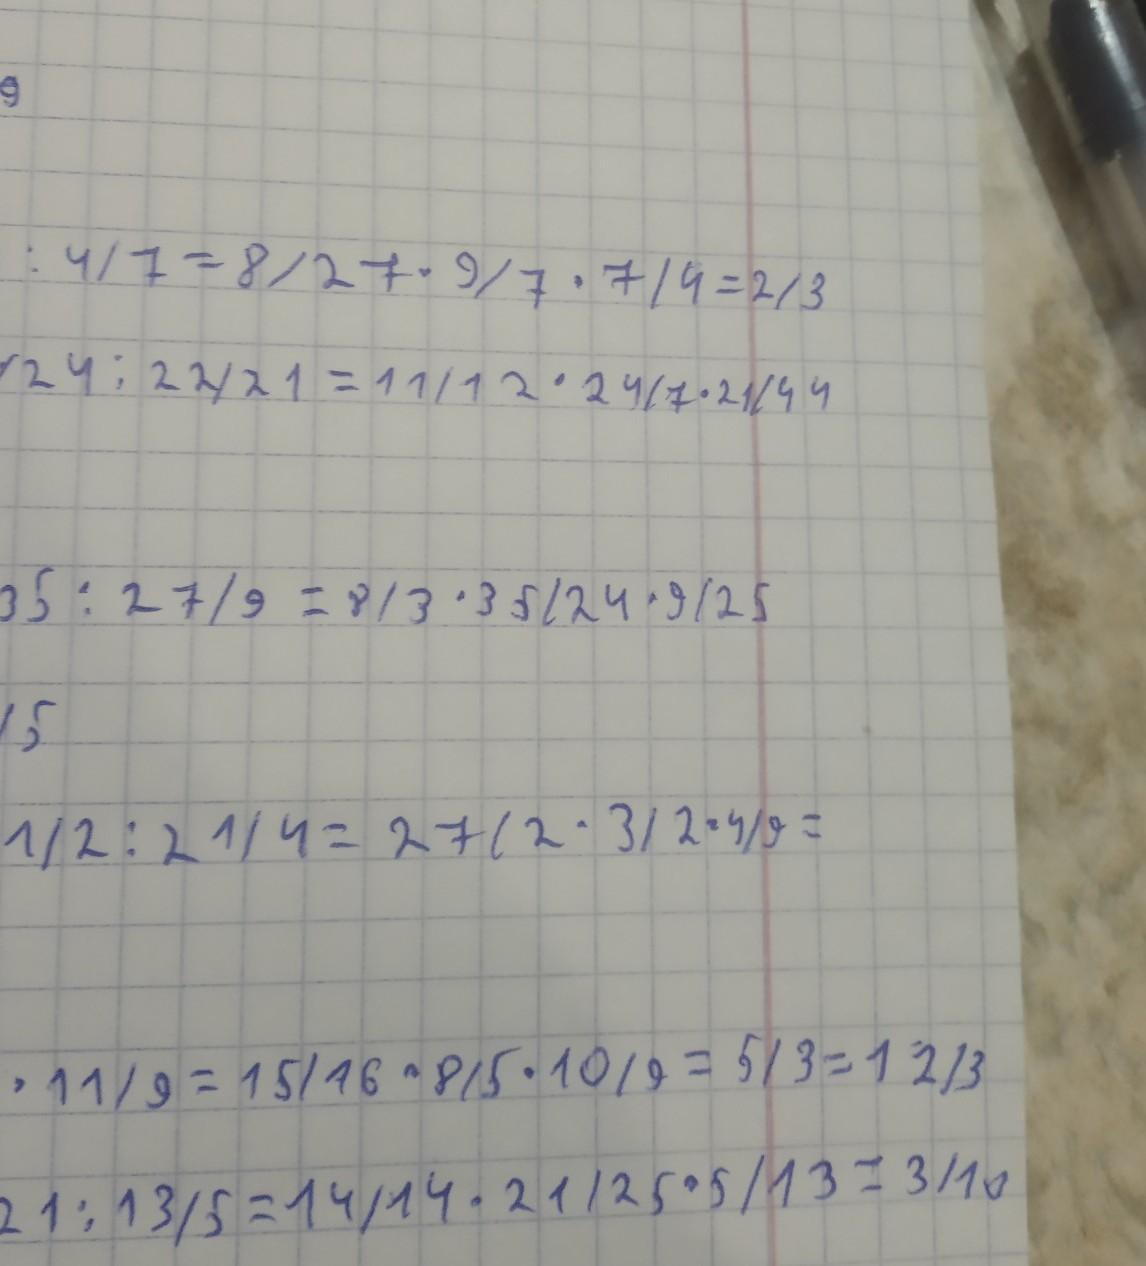 9
: 4/7 = 8/27 · 9/7 · 7/4 = 2/3
/24 : 22/21 = 11/12 · 24/7 · 21/44
35 : 27/9 = 8/3 · 35/24 · 9/25
/5
1/2 : 21/4 = 27/2 · 3/2 · 4/9 =
· 11/9 = 15/16 · 8/5 · 10/9 = 5/3 = 1 2/3
21 : 13/5 = 14/14 · 21/25 · 5/13 = 3/10